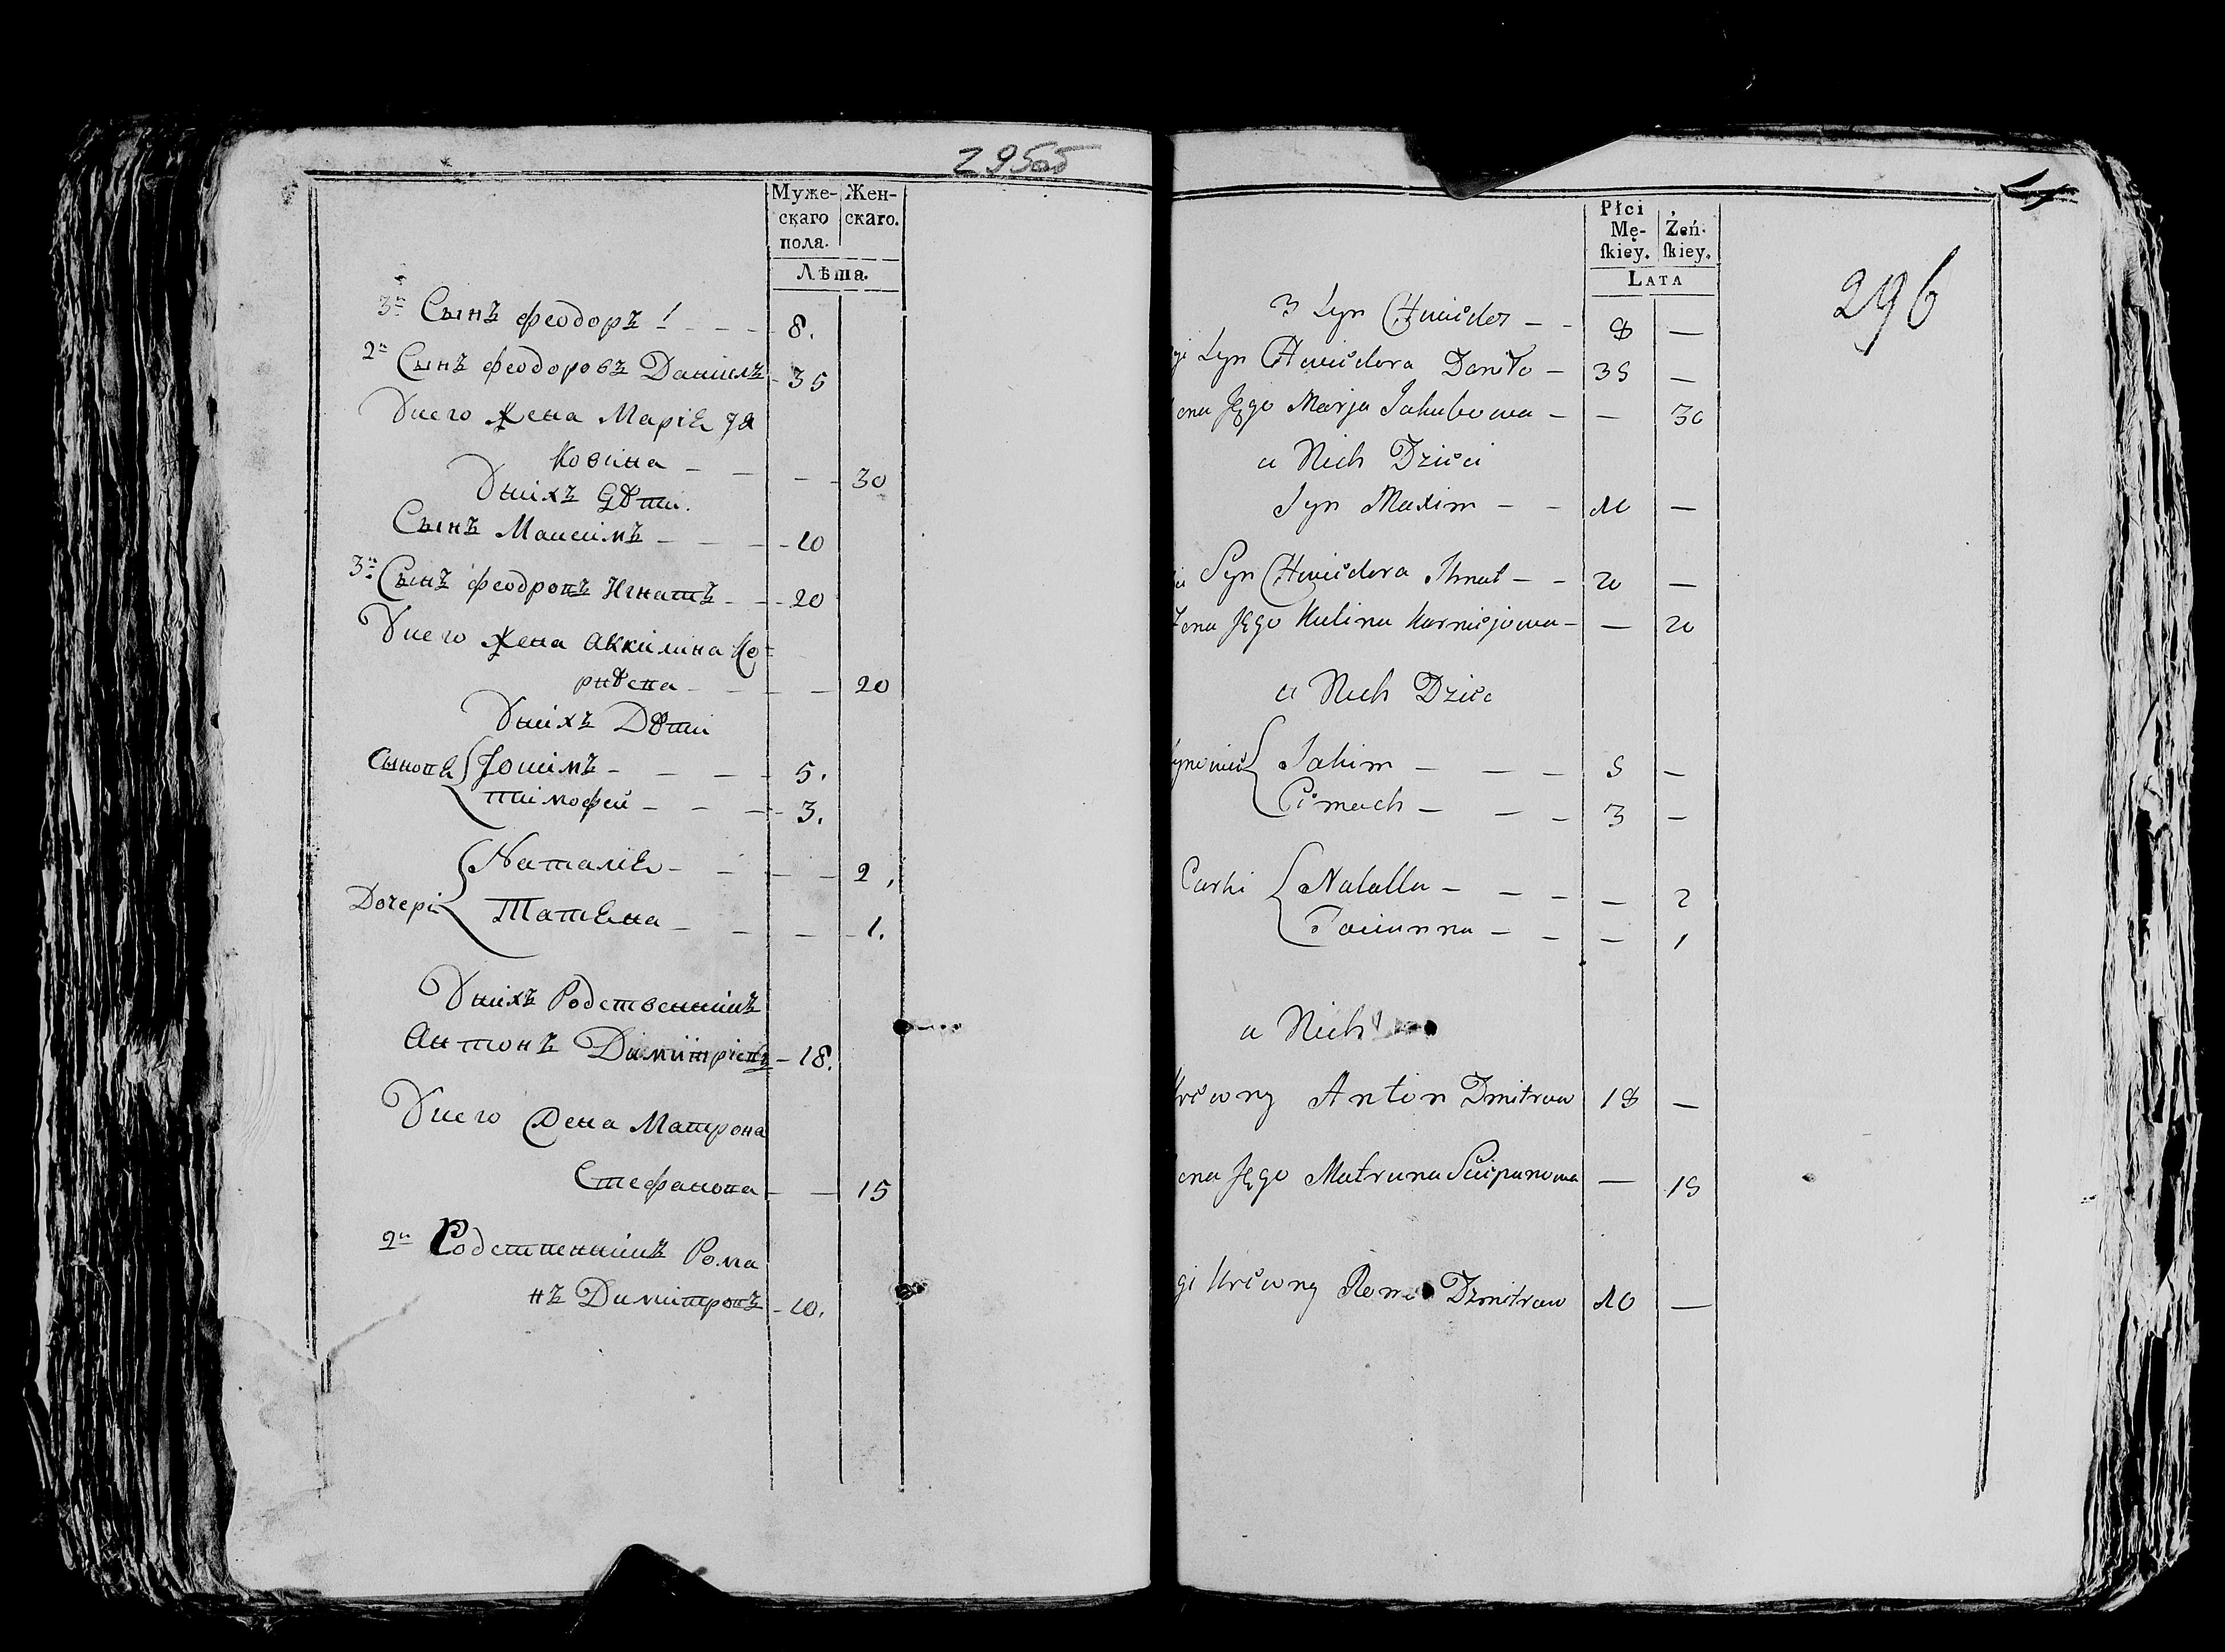 295об
Муже- Жен-
скаго скаго.
пола.
Лѣта.
3й Сынъ Феодоръ 1 - - - 8.
2й Сынъ Феодоровъ Данилъ - 35
Унего Жена Марiя Я
ковина - - - - 30
Унихъ Дѣти.
Сынъ Максимъ - - - 10
3й Сынъ Феодровъ Игнатъ - - 20
Унего Жена Аккилина Ко
рнѣева - - - - 20
Унихъ Дѣти
Сыновя Iокимъ - - - - 5.
Тимофей - - - 3.
Наталiя - - - - 2.
Дочери
Татiяна - - - - 1.
Унихъ Родственникъ
Антонъ Димитрiевъ - 18.
Унего Жена Матрона
Стефанова - - 15
2й Родственникъ Рома
нъ Димитровъ - 10.
4
Płci
Mę- Żeń-
ſkiey. ſkiey.
LATA
296
3 Syn Chwiedor - - 8 —
gi Syn Chwiedora Daniło - 35 —
ena Jego Marja Jakubowa - — 30
u Nich Dzieci
Syn Maxim - - 10 —
Syn Chwiedora Ihnat - - 20 —
Żona Jego Kulina Karniejowa - — 20
u Nich Dziec
ynowie Jakim - - - 5 —
Cimoch - - - 3 —
Curki Natalla - - - — 2
Tacianna - - — 1
u Nich
Krewny Anton Dmitrow 18 —
ona Jego Matruna Sciepanowa — 15
gi Krewny Roma Dzmitrow 10 —